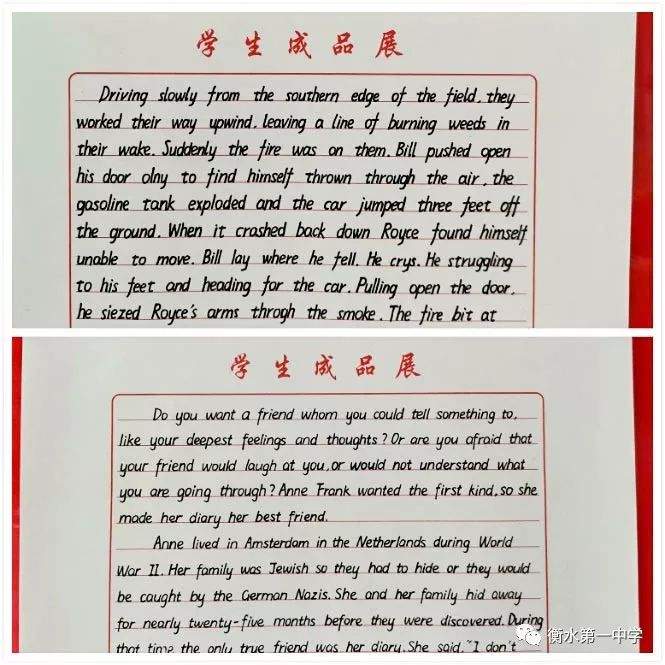 学生成品展
Driving slowly from the southern edge of the field, they
worked their way upwind, leaving a line of burning weeds in
their wake. Suddenly the fire was on them. Bill pushed open
his door olny to find himself thrown through the air, the
gasoline tank exploded and the car jumped three feet off
the ground. When it crashed back down Royce found himself
unable to move. Bill lay where he fell. He crys. He struggling
to his feet and heading for the car. Pulling open the door,
he siezed Royce's arms throgh the smoke. The fire bit at
学生成品展
Do you want a friend whom you could tell something to,
like your deepest feelings and thoughts? Or are you afraid that
your friend would laugh at you, or would not understand what
you are going through? Anne Frank wanted the first kind, so she
made her diary her best friend.
Anne lived in Amsterdam in the Netherlands during World
War II. Her family was Jewish so they had to hide or they would
be caught by the German Nazis. She and her family hid away
for nearly twenty-five months before they were discovered. During
that time the only true friend was her diary. She said, "I don't
衡水第一中学